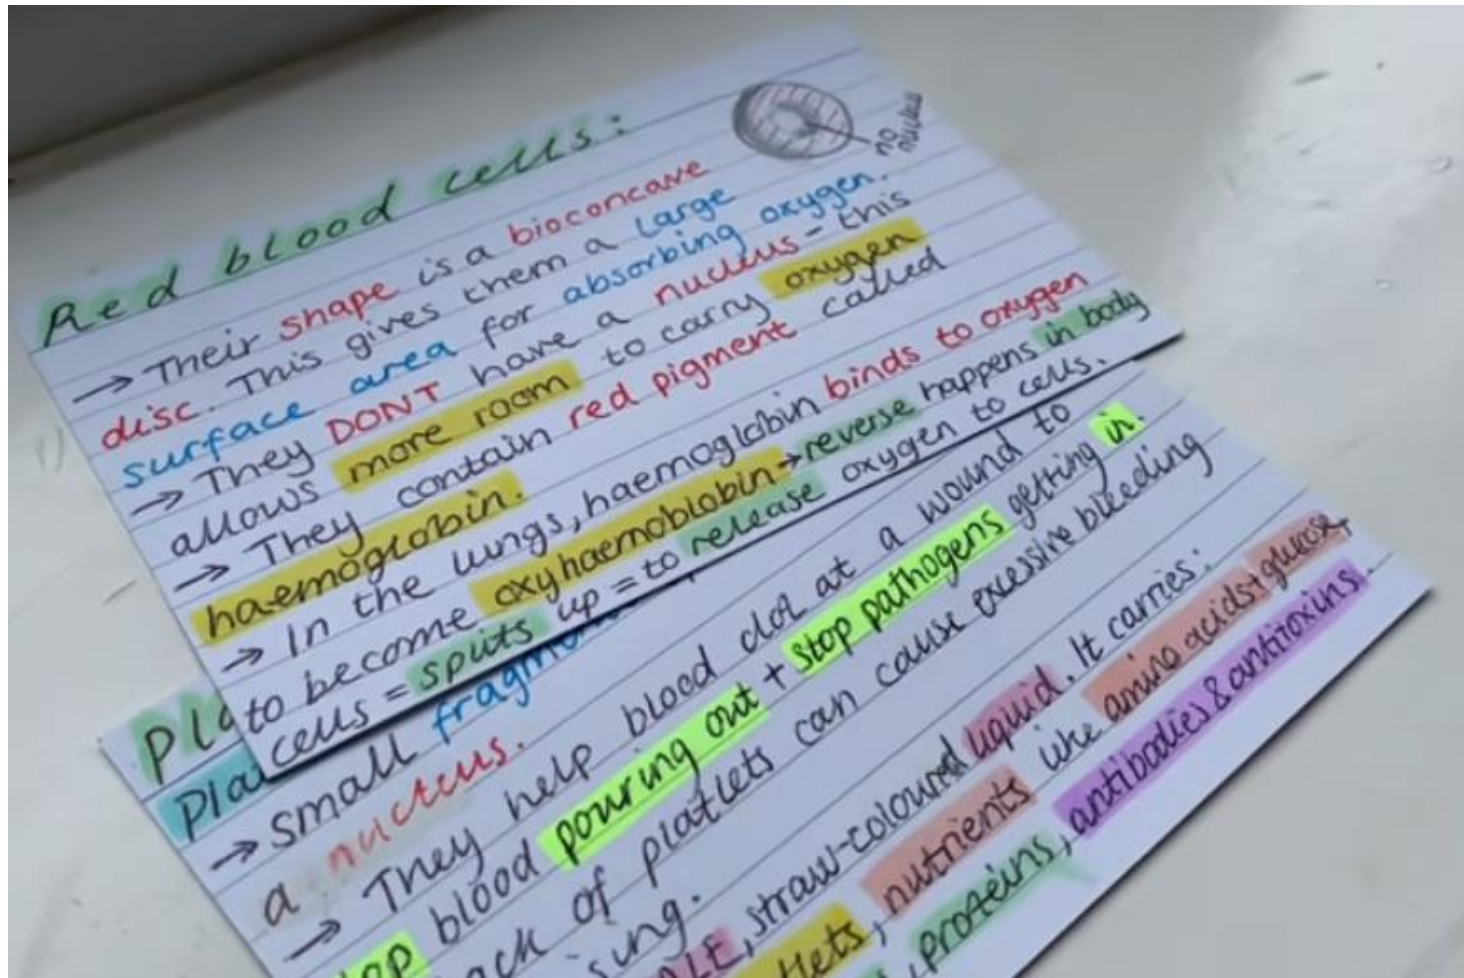 Red blood cells:
no
nucleus
→ Their shape is a bioconcave
disc. This gives them a large
surface area for absorbing oxygen.
→ They DONT have a nucleus - this
allows more room to carry oxygen
→ They contain red pigment called
haemoglobin.
→ In the lungs, haemoglobin binds to oxygen
to become oxyhaemoblobin → reverse happens in body
cells = splits up = to release oxygen to cells.
→ small
a nucleus.
→ They help blood clot at a wound to
blood pouring out + stop pathogens getting in.
of platlets can cause excessive bleeding
straw-coloured liquid. It carries:
nutrients like amino acids + glucose,
proteins, antibodies & antitoxins.